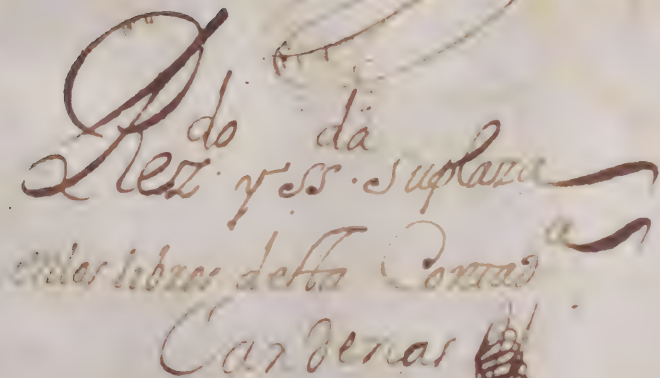 Rez.do y ss.da su plaza
en los libros desta Contad.a
Cardenas